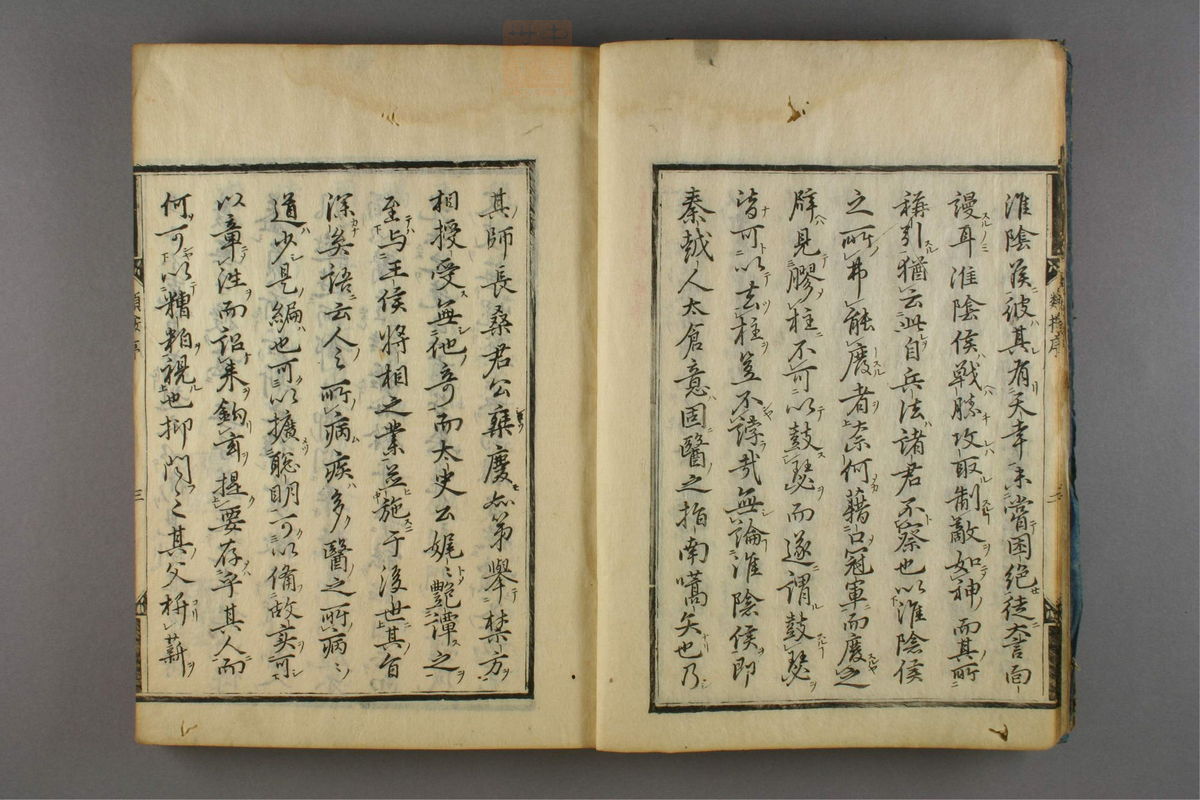 淮陰矦彼其有天幸未甞困絶徒大言面
謾耳淮陰侯戦勝攻取制敵如神而其所
稱引猶云此自兵法諸君不察也以淮陰侯
之所弗能度者奈何藉口冠軍而度之
辟見膠柱不可以鼓瑟而遂謂鼓瑟
皆可以去柱豈不誖哉無論淮陰侯即
秦越人太倉意固醫之指南嚆矢也乃
其師長桑君公乗慶亦第舉禁方
相授受無他奇而太史公娓〻艶潭之
至与王侯將相之業並施于後世其旨
深矣語云人之所病疾多醫之所病〻
道少是編也可以擴聡明可以俻故実可
以章性而詔来鈎玄提要存乎其人而
何可以糟粕視也抑聞之其父析薪
類按序
二
三